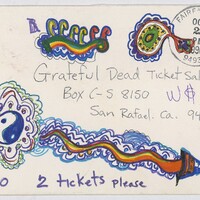 Grateful Dead Ticket Sal
Box C-S 8150
San Rafael. Ca. 94
2 tickets please